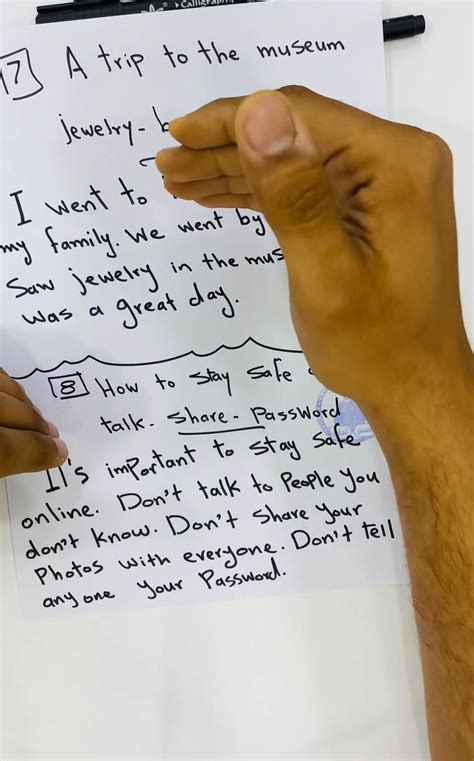 Calligraphy
7 A trip to the museum
jewelry -
I went to
my family. We went by
Saw jewelry in the mus
was a great day.
8 How to stay safe
talk - share - Password
It's important to stay safe
online. Don't talk to People you
don't know. Don't share your
Photos with everyone. Don't tell
any one your Password.